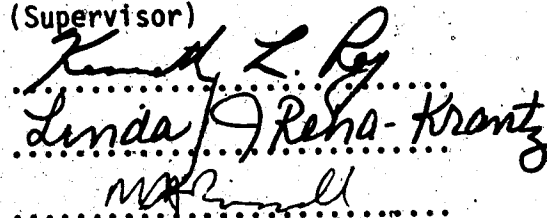 (Supervisor)
Kenneth L. Roy
Linda J Reha-Krantz